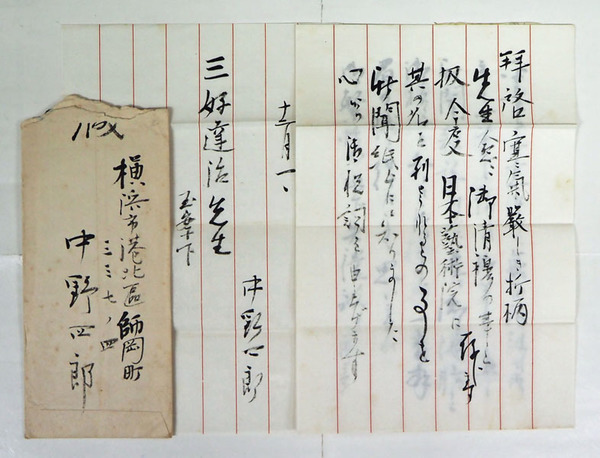 拝啓 寒氣嚴しき折柄
先生愈々御清穆の事と存じます
扨 今度 日本藝術院に
其の名を列せられるの事を
新聞紙上にて知りました、
心から御祝詞を申上げます
十二月一、
中野四郎
三好達治先生
玉案下
横浜市港北區師岡町
三三七ノ四
中野四郎